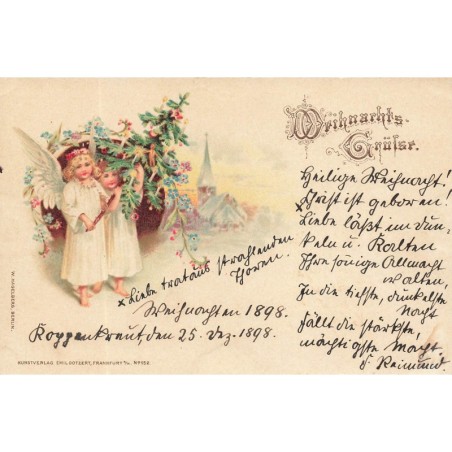 Weihnachts-
Grüße.
Heilige Weihnacht!
Christ ist geboren!
Liebe läßt im Dun-
keln u. Kalten
Ihre sonige Allmacht
walten,
In die tiefste, dunkelste
Nacht
Fällt die stärkste,
mächtigste Macht.
d. Raimund.
x Liebe trat aus strahlenden
Thoren.
Weihnachten 1898.
Koppenkraut den 25. Dez. 1898.
W. HAGELBERG, BERLIN.
KUNSTVERLAG EMIL DOTZERT, FRANKFURT a/M. Nº 952